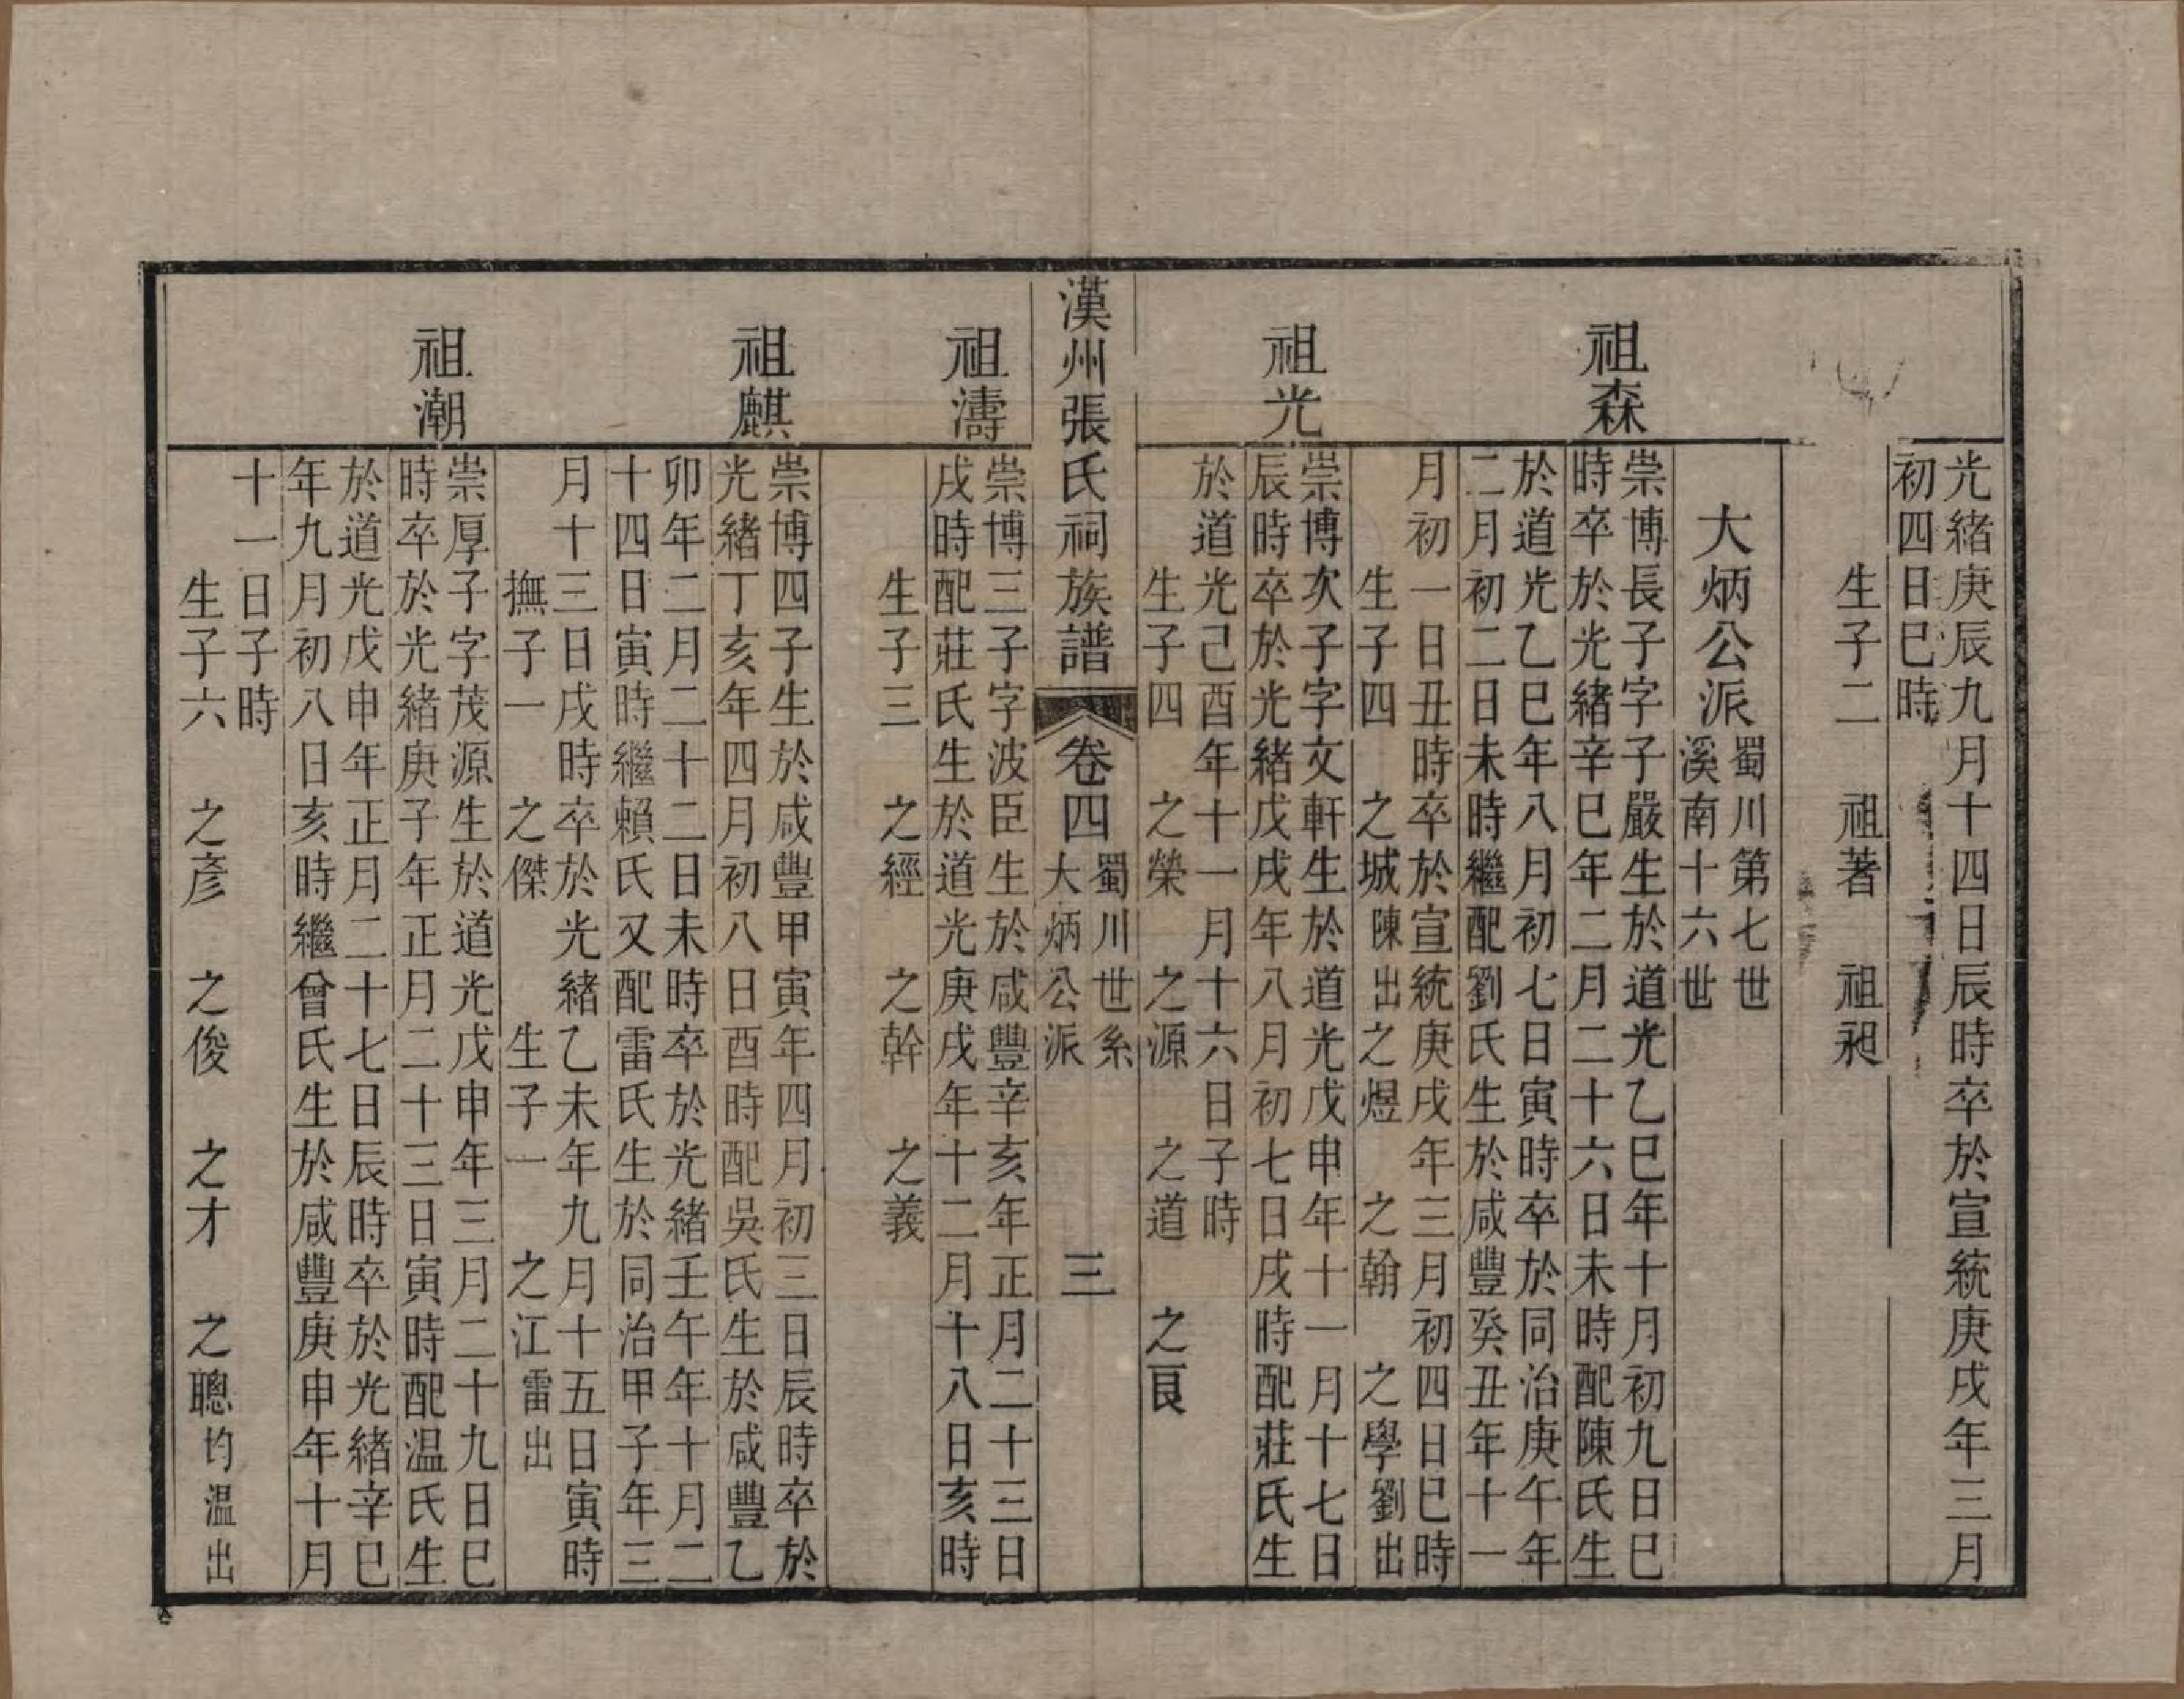 光緒庚辰九月十四日辰時卒於宣統庚戌年三月
初四日巳時
生子二 祖著 祖昶
大炳公派
蜀川第七世
溪南十六世
祖森
崇博長子字子嚴生於道光乙巳年十月初九日巳
時卒於光緒辛巳年二月二十六日未時配陳氏生
於道光乙巳年八月初七日寅時卒於同治庚午年
二月初二日未時繼配劉氏生於咸豐癸丑年十一
月初一日丑時卒於宣統庚戌年三月初四日巳時
生子四 之城陳出 之煜 之翰 之學劉出
祖光
崇博次子字文軒生於道光戊申年十一月十七日
辰時卒於光緒戊戌年八月初七日戌時配莊氏生
於道光己酉年十一月十六日子時
生子四 之榮 之源 之道 之艮
漢州張氏祠族譜
卷四
蜀川世系
大炳公派
三
祖濤
崇博三子字波臣生於咸豐辛亥年正月二十三日
戌時配莊氏生於道光庚戌年十二月十八日亥時
生子三 之經 之幹 之義
祖麒
崇博四子生於咸豐甲寅年四月初三日辰時卒於
光緒丁亥年四月初八日酉時配吳氏生於咸豐乙
卯年二月二十二日未時卒於光緒壬午年十月二
十四日寅時繼賴氏又配雷氏生於同治甲子年三
月十三日戌時卒於光緒乙未年九月十五日寅時
撫子一 之傑 生子一 之江雷出
祖潮
崇厚子字茂源生於道光戊申年三月二十九日巳
時卒於光緒庚子年正月二十三日寅時配温氏生
於道光戊申年正月二十七日辰時卒於光緒辛巳
年九月初八日亥時繼曾氏生於咸豐庚申年十月
十一日子時
生子六 之彥 之俊 之才 之聰均温出